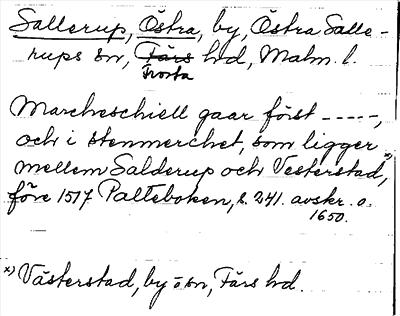 Sallerup, Östra, by, Östra Salle-
rups sn, Färs hd, Malm. l.
Frosta
Marcheschiell gaar först -----,
och i stenmerchet, som ligger
mellem Salderup och Vesterstad,x)
före 1517 Palteboken, s. 241. avskr. o.
1650.
x) Västerstad, by o sn, Färs hd.